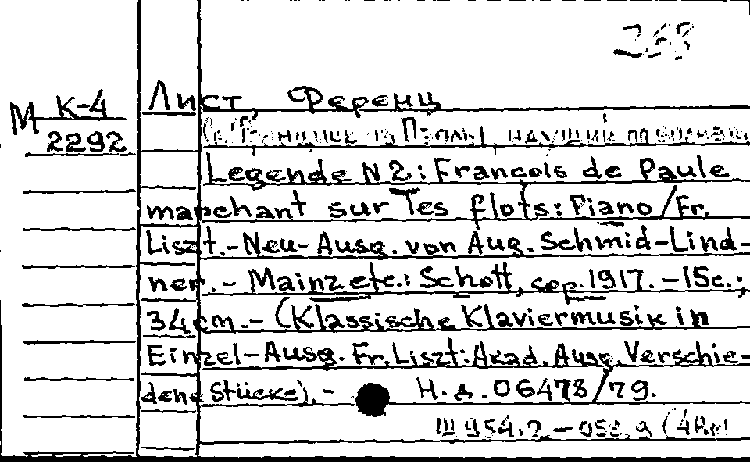 263
М К-4
2292
Лист, Ференц
Legende N2: François de Paule
marchant sur les flots: Piano/Fr.
Liszt.-Neu-Ausg. von Aug. Schmid-Lind-
ner.- Mainz etc.: Schott, cop. 1917.-15c.;
34cm.-(Klassische Klaviermusik in
Einzel-Ausg. Fr. Liszt: Akad. Ausg. Verschie-
dene Stücke).-
Н.д. 06478/79.
Ш 954.2